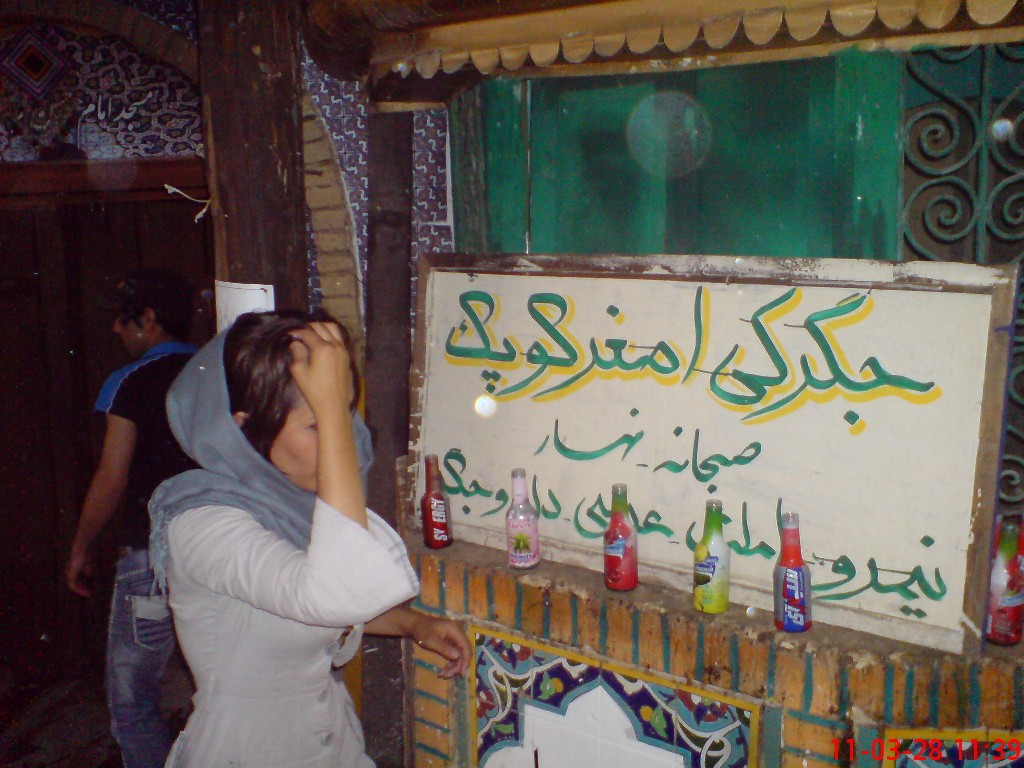 مسجد امام
جگرکی اصغر کوپک
صبحانه نهار
نیمرو املت عدسی دل و جگر
11-03-28 11:39